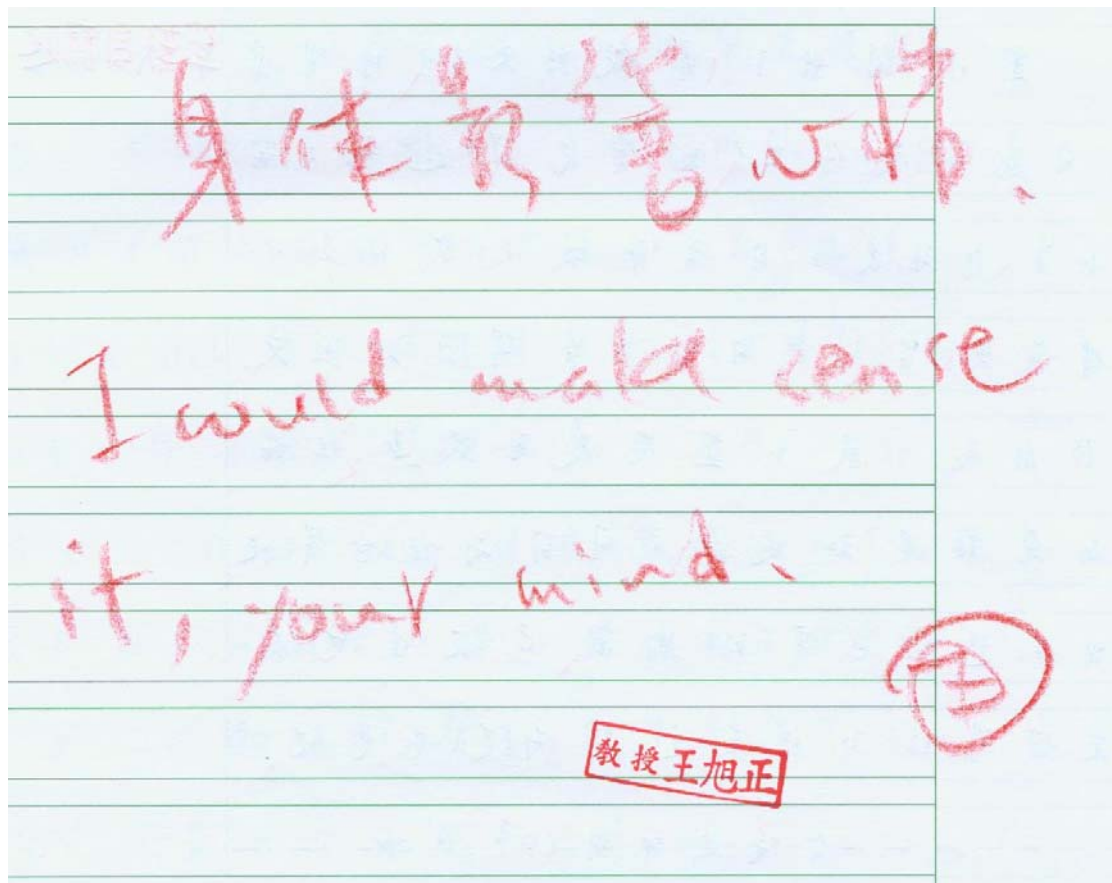 身体影響心情、
I would make sense
it, your mind、
教授王旭正